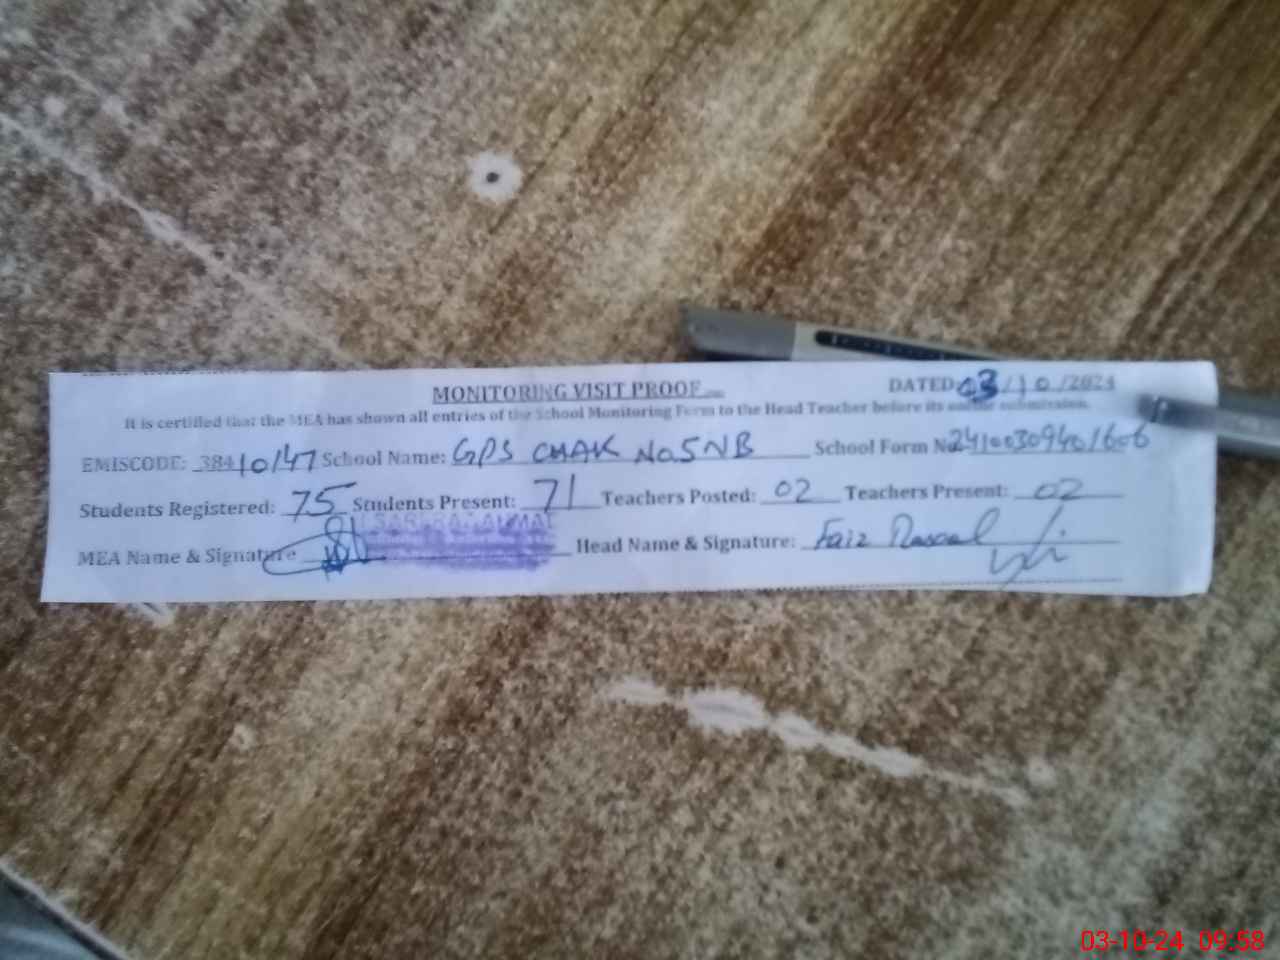 MONITORING VISIT PROOF DATED 03/10/2024
It is certified that the MEA has shown all entries of the School Monitoring Form to the Head Teacher before its online submission.
EMISCODE: 38410147 School Name: GPS CHAK No.5NB School Form No
Students Registered: 75 Students Present: 71 Teachers Posted: 02 Teachers Present: 02
MEA Name & Signature Head Name & Signature: Faiz Rasool
03-10-24 09:58